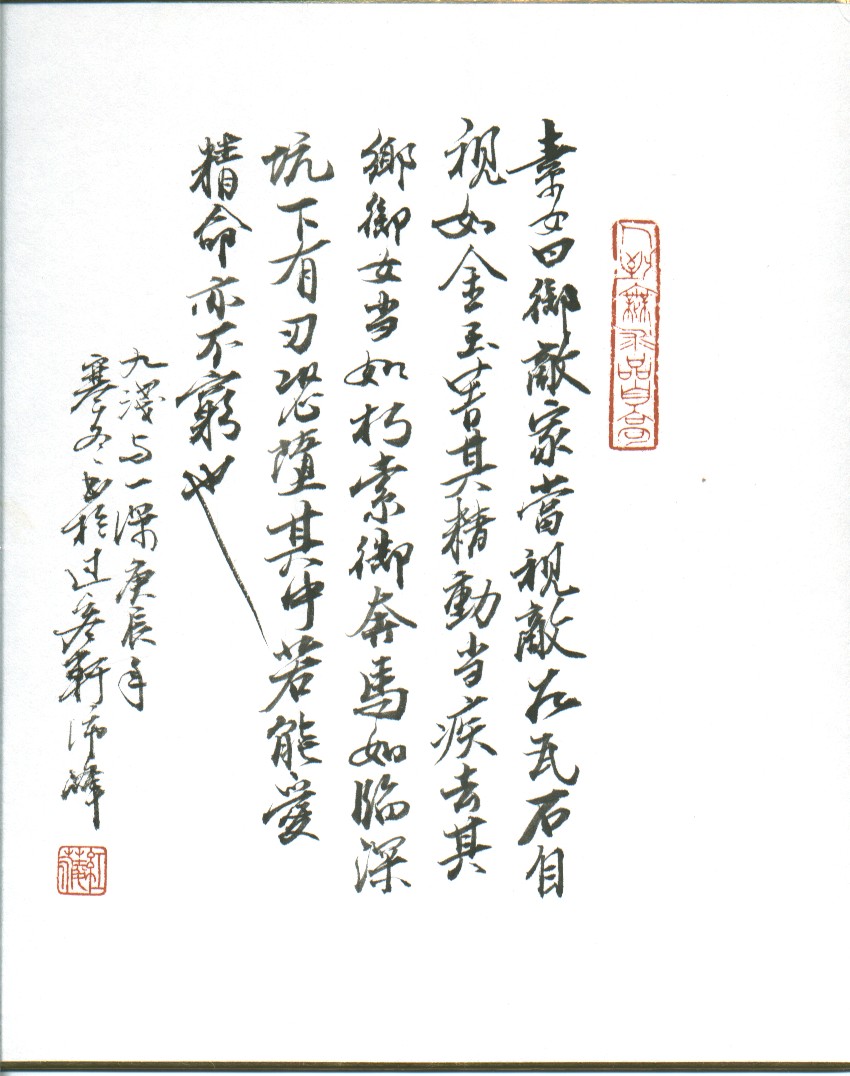 人到無求品自高
素女曰御敵家當視敵如瓦石自
視如金玉若其精動当疾去其
鄉御女当如朽索御奔馬如臨深
坑下有刃恐墮其中若能愛
精命亦不窮也
九淺与一深庚辰年
寒冬書於过彥軒沛峰